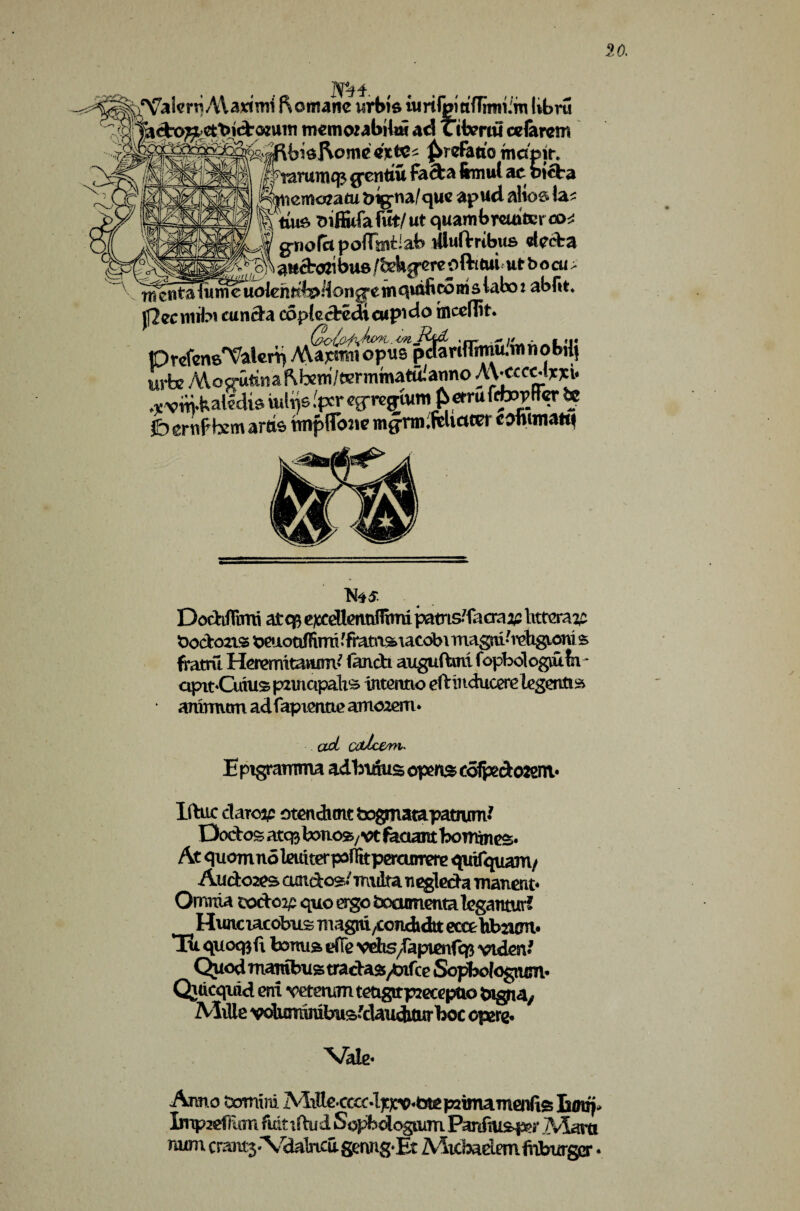 20.
N44.
Valerij Maximi Romane urbis iurisꝑitissimi.in librū
factoꝝ et dictorum memorabiliū ad Tiberiū cesarem
Urbis Rome exte⸗ Prefatio incipit.
rarumqꝫ gentiū facta simul ac dicta
memoratu digna/que apud alios la⸗
tius diffusa sūt/ut quam breuiter co⸗
gnosci possint:ab illustribus electa
auctoribus/deligere ostitui ut docu⸗
menta sumere uolentibꝫ longe inquisitōnis labor absit.
Nec mihi cuncta cōplectēdi cupido incessit.
Colophon. in Red.
Presens Valerij Maximi opus p̄clarissimū.in nobili
urbe Mogūtina Rheni/terminatū.anno M.cccc.lxxi.
xviij.kalēdis iulijs.per egregium Petrū schoyffer de
Gernßhem artis impssorie mgr̄m.feliciter ɔsumatū
N45.
Doctissimi atqꝫ excellentissimi patris/sacraꝝ litteraꝝ
doctoris deuotissimi/fratris iacobi magni/religionis
fratrū Heremitarum/sancti augustini sophologiū in⸗
cipit.Cuius principalis intentio est inducere legentis
animum ad sapientie amorem.
ad calcem.
Epigramma ad huius operis cōspectorem.
Istuc claroꝝ otendunt dogmata patrum/
Doctos atqꝫ bonos/vt faciant homines.
At quom nō leuiter possit percurrere quisquam/
Auctores cunctos/multa neglecta manent.
Omnia doctoꝝ quo ergo documenta legantur?
Hunc iacobus magni/condidit ecce librum.
Tu quoqꝫ si bonus esse velis/sapiensqꝫ videri/
Quod manibus tractas/disce Sophologium.
Quicquid eni veterum tetigit preceptio digna/
Mille voluminibus/clauditur hoc opere.
Vale.
Anno domini Mille.cccc.lxxv.die prima mensis Iunij.
Impressum fuit istud Sophologium Parisius.per Marti
num crantz.Vdalricū gering.Et Michaelem friburger.